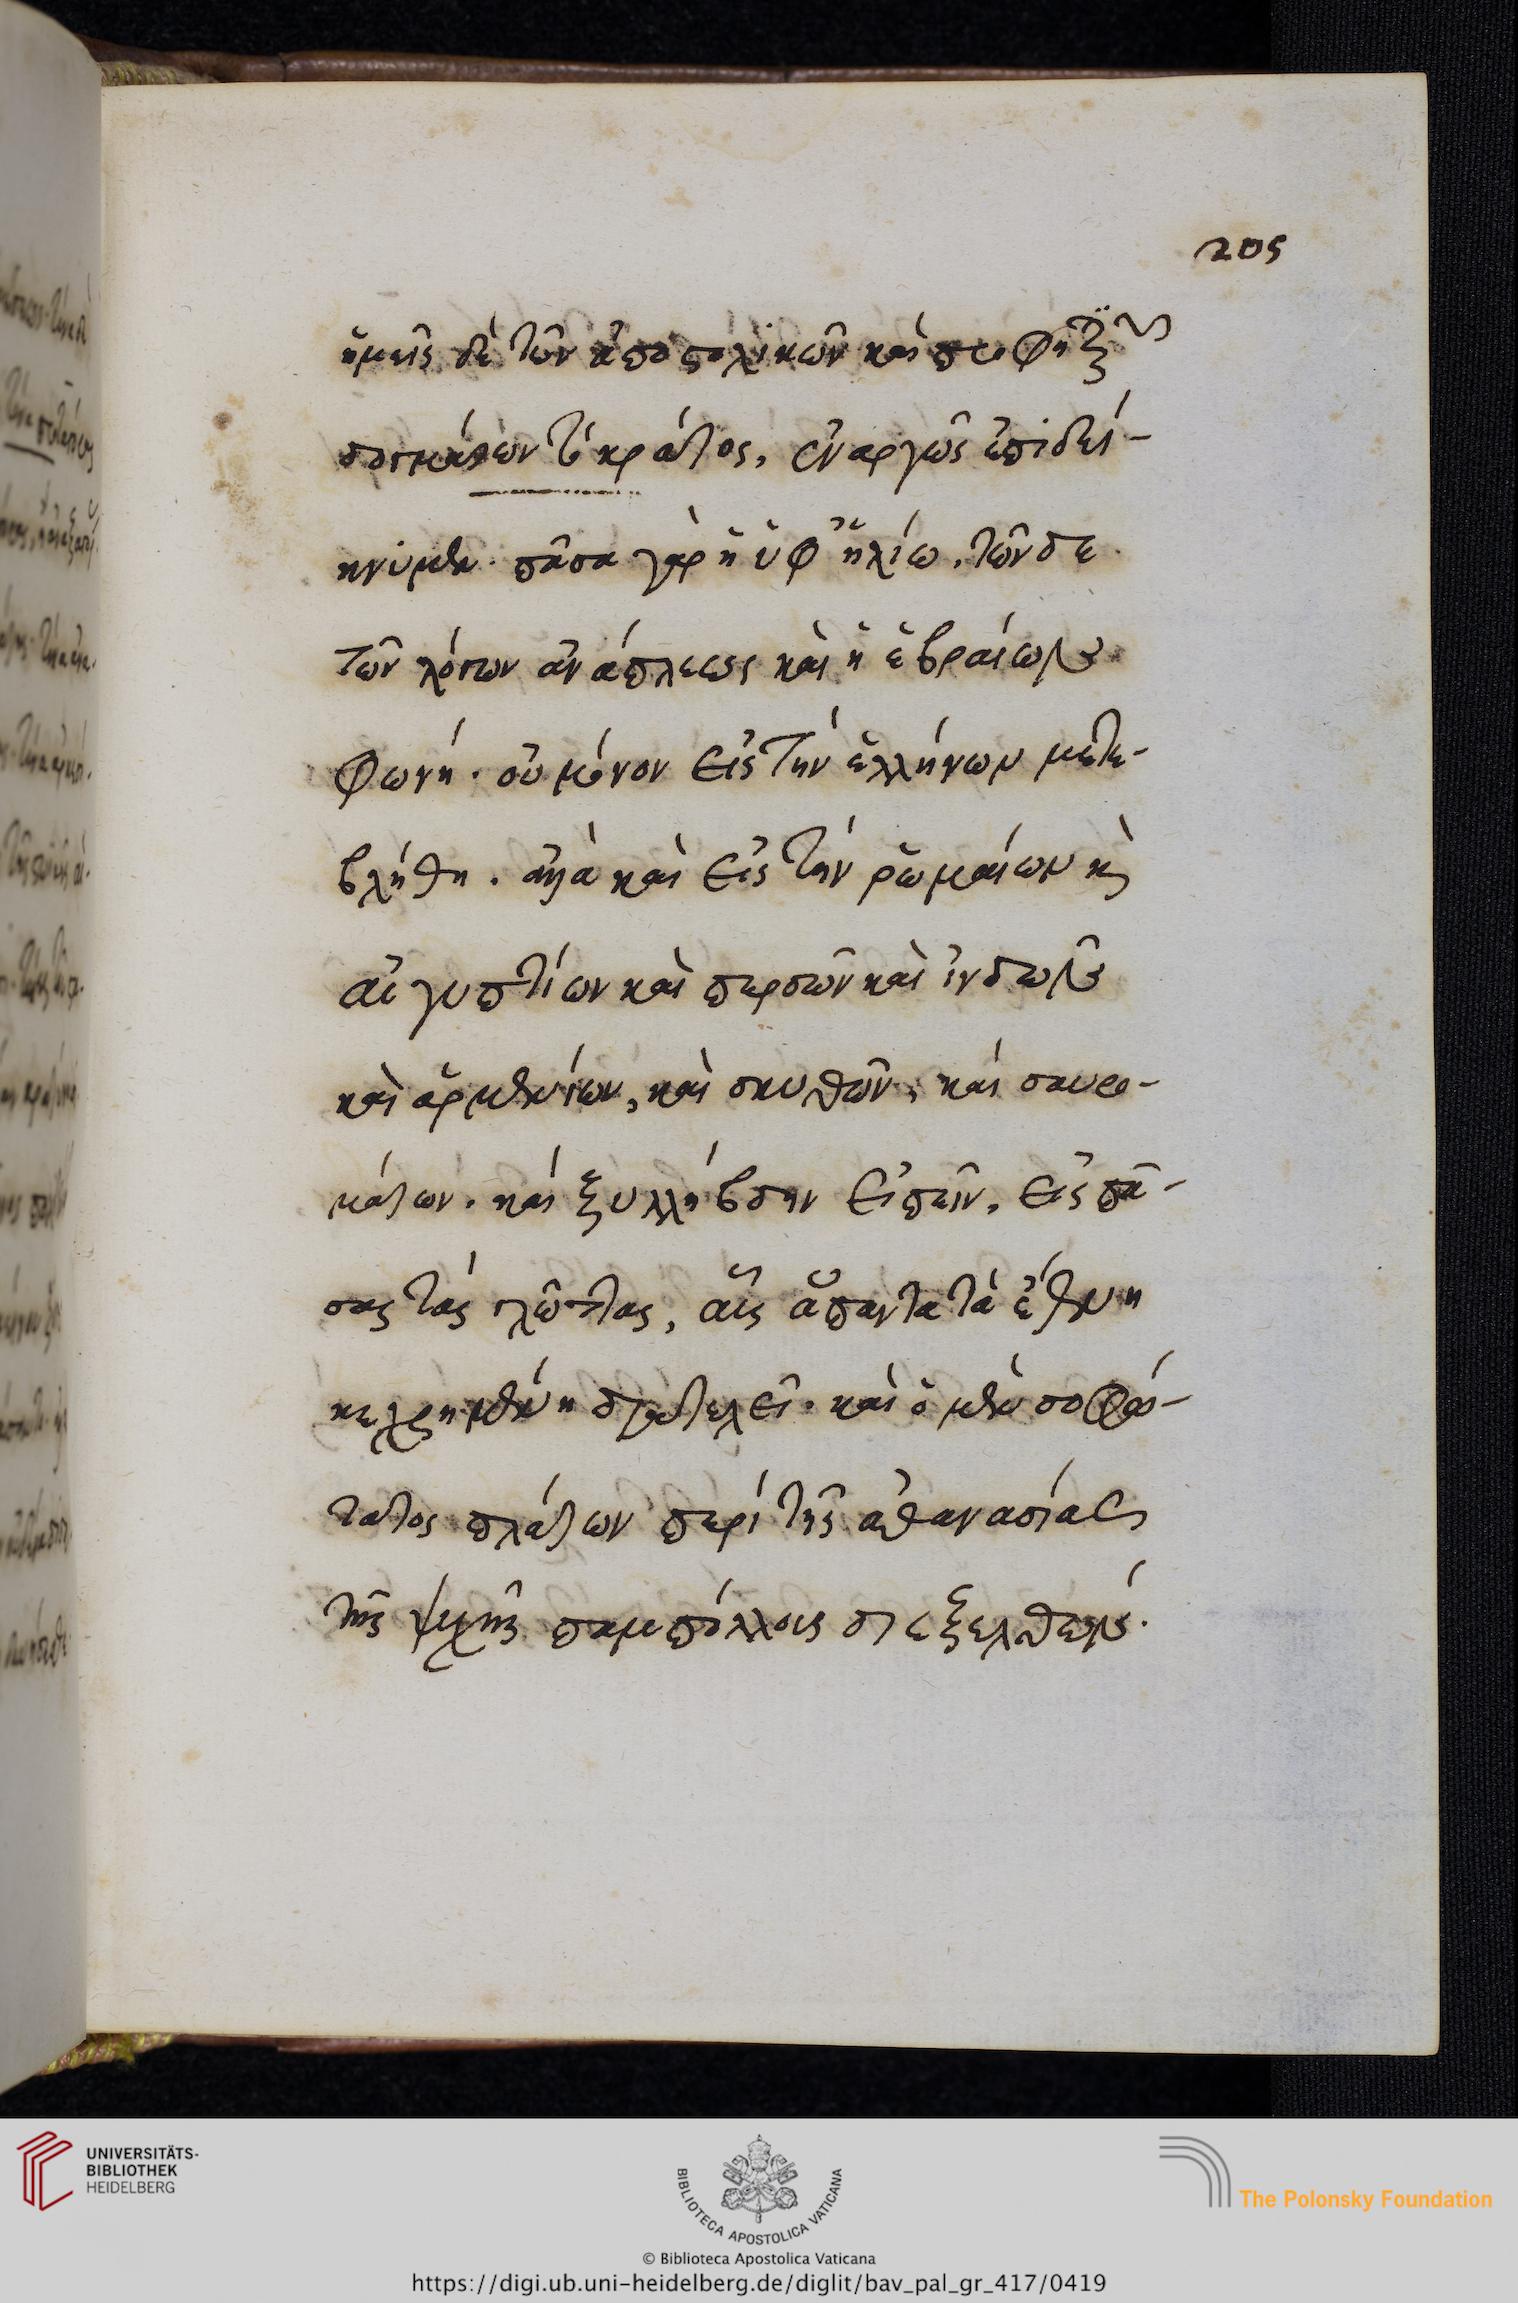 205
ἡμεῖς δὲ τῶν ἀποστολικῶν καὶ προφητικῶν
δογμάτων τὸ κράτος, ἐναργῶς ἐπιδεί-
κνυμεν. πᾶσα γὰρ ἡ ὑφ' ἡλίω, τῶνδε
τῶν λόγων ἀνάπλεως καὶ ἡ ἑβραίων
φωνή. οὐ μόνον εἰς τὴν ἑλλήνων μετε-
βλήθη. ἀλλὰ καὶ εἰς τὴν ῥωμαίων κ
αἰγυπτίων καὶ περσῶν καὶ ἰνδῶν
καὶ ἀρμενίων, καὶ σκυθῶν, καὶ σαυρο-
μάτων. καὶ ξυλλήβδην εἰπεῖν, εἰς πά-
σας τὰς γλώττας, αἷς ἅπαντα τὰ ἔθνη
κεχρημένη διατελεῖ. καὶ ὁ μὲν σοφώ-
τατος πλάτων περὶ τῆς ἀθανασίας
τῆς ψυχῆς παμπόλλους διεξελθὼν
UNIVERSITÄTS-
BIBLIOTHEK
HEIDELBERG
BIBLIOTECA APOSTOLICA VATICANA
The Polonsky Foundation
© Biblioteca Apostolica Vaticana
https://digi.ub.uni-heidelberg.de/diglit/bav_pal_gr_417/0419